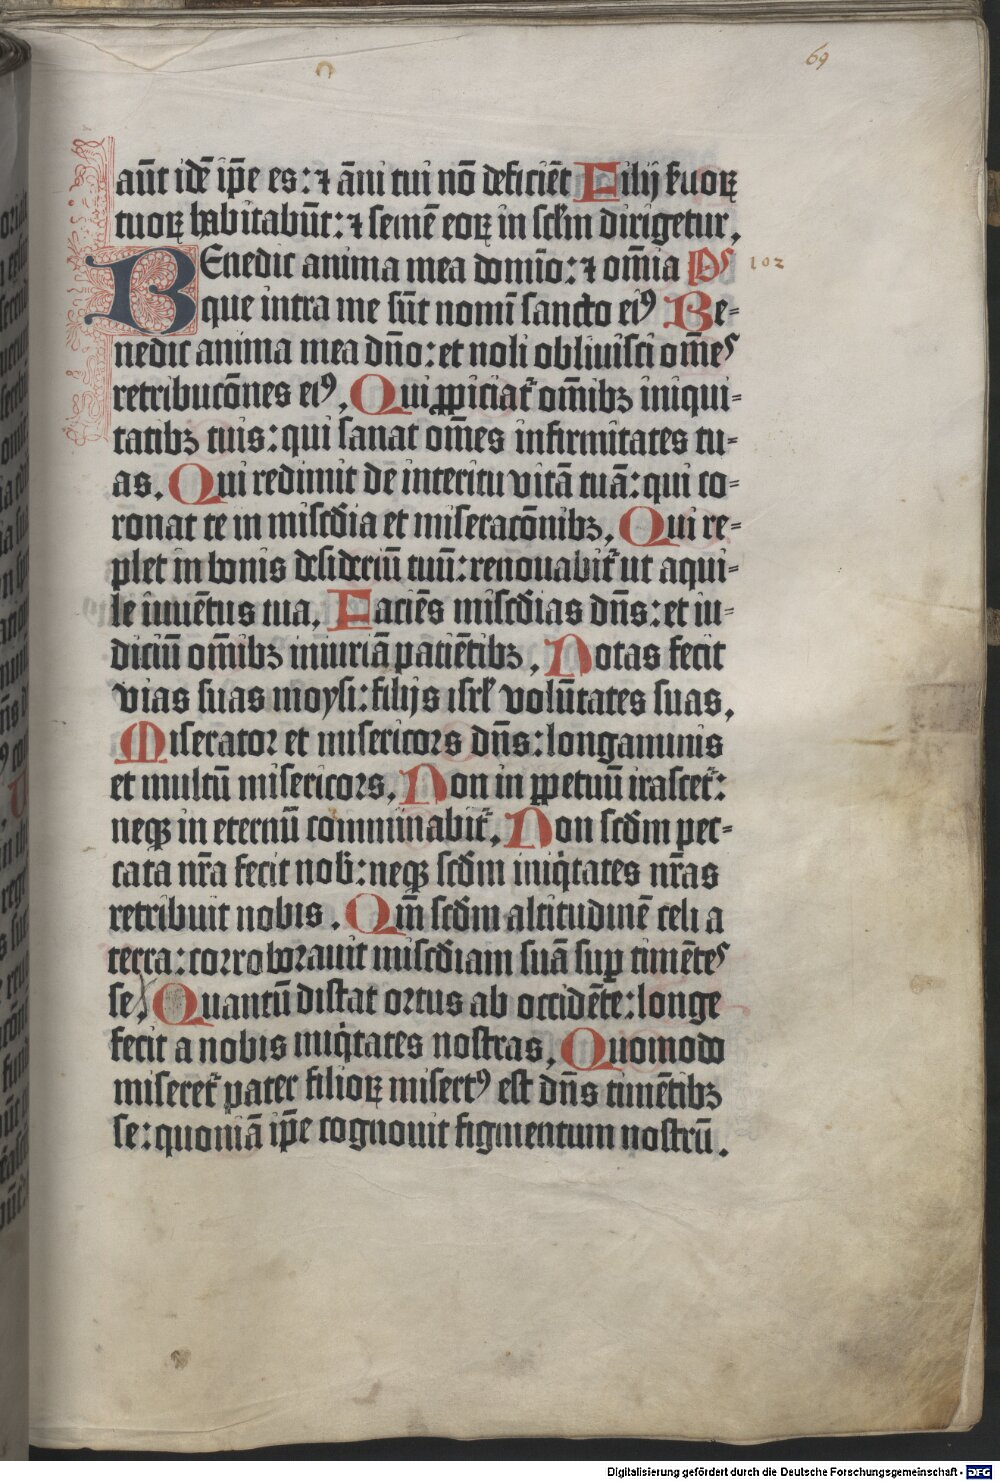 69
aūt idē ip̄e es: ⁊ āni tui nō deficiēt Filij ẜuoꝝ
tuoꝝ habitabūt: ⁊ semē eoꝝ in sc̄lm dirigetur.
BEnedic anima mea domīo: ⁊ om̄ia p̄s 102
que intra me sūt nomī sancto eiꝰ Be-
nedic anima mea dn̄o: et noli obliuisci om̄es
retribucōnes eiꝰ. Qui ꝓpiciat᷑ om̄ibꝫ iniqui-
tatibꝫ tuis: qui sanat om̄es infirmitates tu-
as. Qui redimit de interitu vitā tuā: qui co-
ronat te in mis̄cdia et miseracōnibꝫ. Qui re-
plet in bonis desideriū tuū: renouabit᷑ ut aqui-
le iuuētus tua. Faciēs mis̄cdias dn̄s: et iu-
diciū om̄ibꝫ iniuriā patiētibꝫ. Notas fecit
vias suas moysi: filijs isrl̄ volūtates suas.
Miserator et misericors dn̄s: longanimis
et multū misericors. Non in ꝑpetuū irascet᷑:
neqꝫ in eternū comminabit᷑. Non sc̄dm pec-
cata nr̄a fecit nob̄: neqꝫ sc̄dm iniq̇tates nr̄as
retribuit nobis. Qm̄ sc̄dm altitudinē celi a
terra: corroborauit mis̄cdiam suā suꝑ timētes
se. Quantū distat ortus ab occidēte: longe
fecit a nobis iniq̇tates nostras. Quomodo
miseret᷑ pater filioꝝ misertꝰ est dn̄s timētibꝫ
se: quoniā ip̄e cognouit figmentum nostrū.
Digitalisierung gefördert durch die Deutsche Forschungsgemeinschaft - DFG